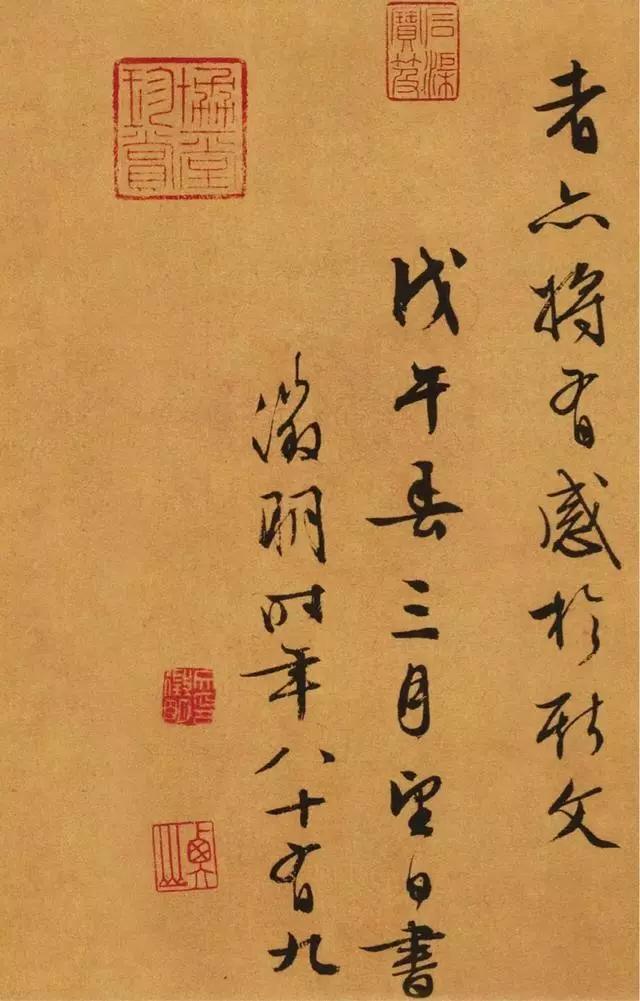 者亦將有感於斯文
戊午春三月望日書
徵明時年八十有九
協堂珍賞